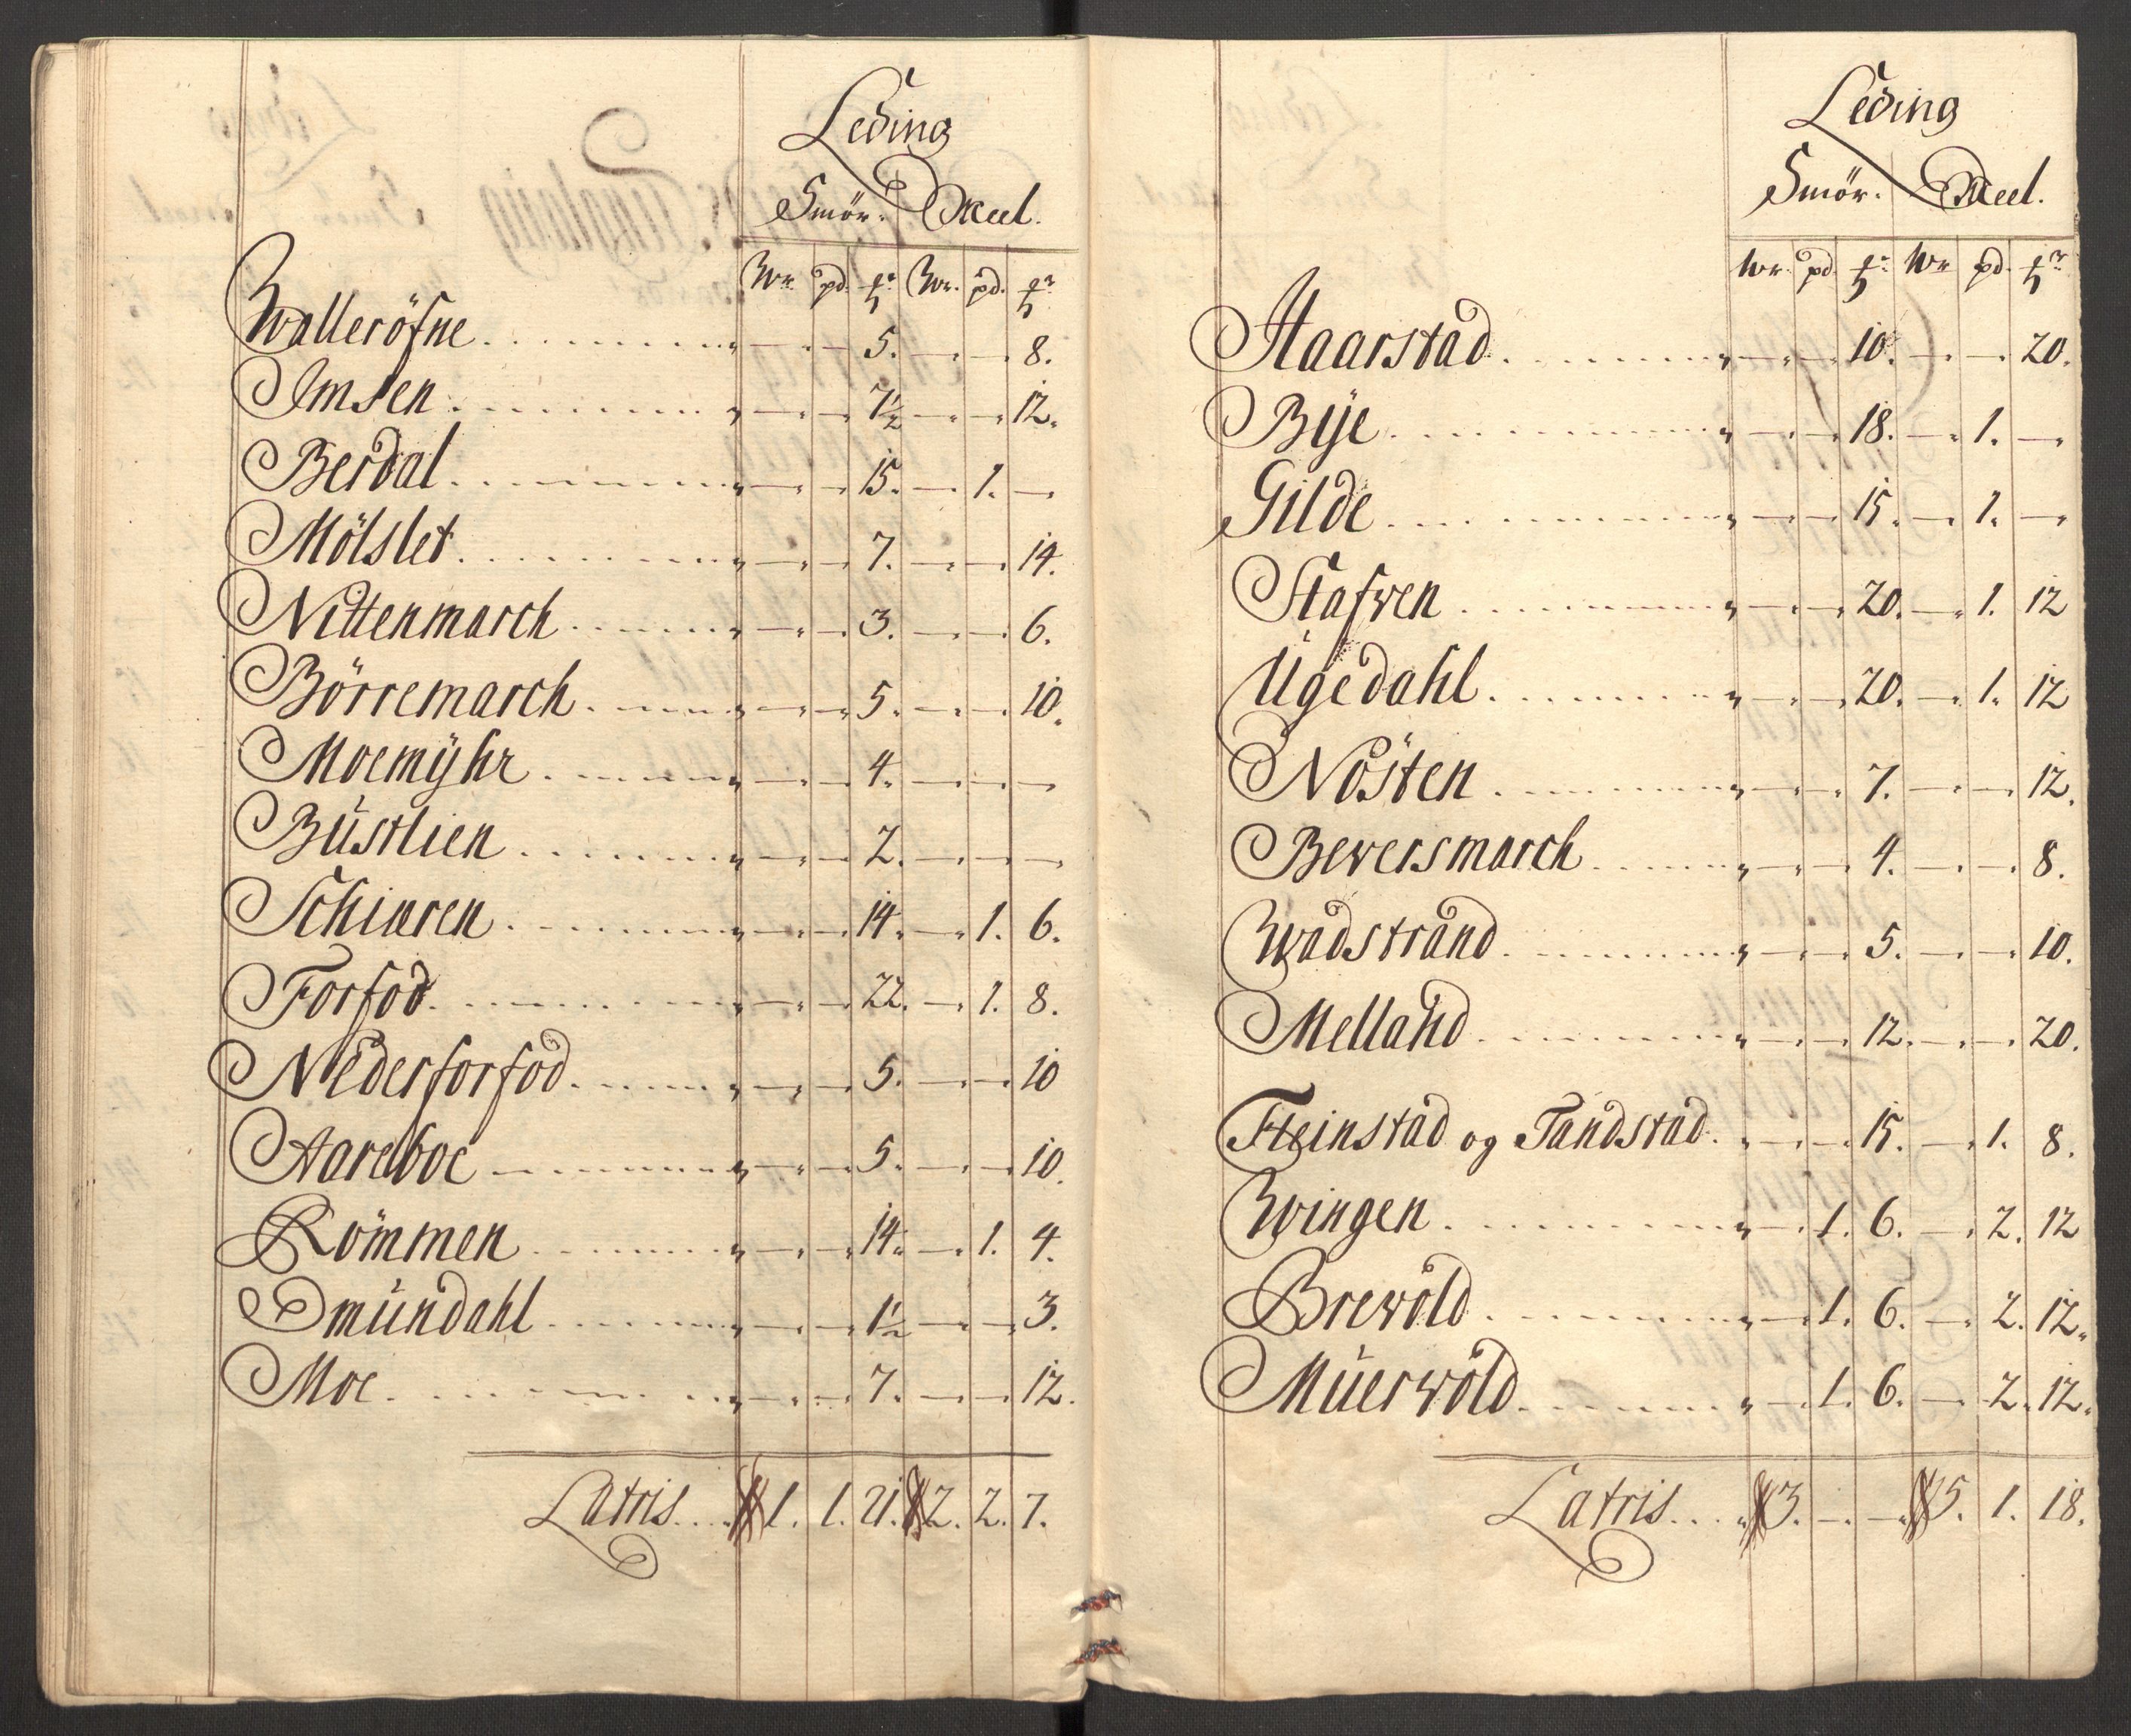 Leding
Smör. Meel.
Wr. pd. ℔r Wr. pd. ℔r
Wolleröfne. . . . . . . . . „ — . — 5. — . — 8.
Imsen . . . . . . . . . „ — . — 7½ — . — . 12.
Berdal . . . . . . . . . „ — . — . 15. — . 1. —.
Mölslet . . . . . . . . . „ — . — . 7. — . — . 14.
Nittenmarch . . . . . . „ — . — . 3. — . — . 6.
Börremarch . . . . . . „ — . — . 5. — . — . 10.
Moemÿhr . . . . . . . „ — . — . 4. — . — . —
Bustlien . . . . . . . „ — . — . 2. — . — . —
Schiæren . . . . . . . „ — . — . 14. — . 1. 6.
Forfod . . . . . . . „ — . — . 22. — . 1. 8.
Nederforfod . . . . . „ — . — . 5. — . — . 10
Aareboe . . . . . . . „ — . — . 5. — . — . 10.
Römmen . . . . . . . „ — . — . 14. — . 1. 4.
Smundahl . . . . . . „ — . — . 1½ — . — . 3.
Moe . . . . . . . . . „ — . — . 7. — . — 12.
Latris. . . . 1. 1. 21. 2. 2. 7.
Leding
Smör. Meel.
Wr. pd. ℔r Wr pd. ℔r
Haarstad . . . . . . . „ — . — . 10. — . — . 20.
Bÿe . . . . . . . . . „ — . — . 18. — . 1. —.
Gilde . . . . . . . . . „ — . — . 15. — . 1. —.
Stafwen . . . . . . . „ — . — . 20. — . 1. 12
Ugedahl . . . . . . . „ — . — . 20. — . 1. 12
Nösten . . . . . . . „ — . — . 7. — . — . 12.
Bewersmarch . . . . . „ — . — . 4. — . — . 8.
Wadstrand . . . . . . „ — . — . 5. — . — . 10.
Melland . . . . . . . „ — . — . 12. — . — . 20.
Fleinstad og Tandstad . „ — . — . 15. — . 1. 8.
Wingen . . . . . . . „ — . 1. 6. — . 2. 12
Brewold . . . . . . . „ — . 1. 6. — . 2. 12.
Muerwold . . . . . . . „ — . 1. 6. — . 2. 12.
Latris. . . . 3. — . — . 5. 1. 18.